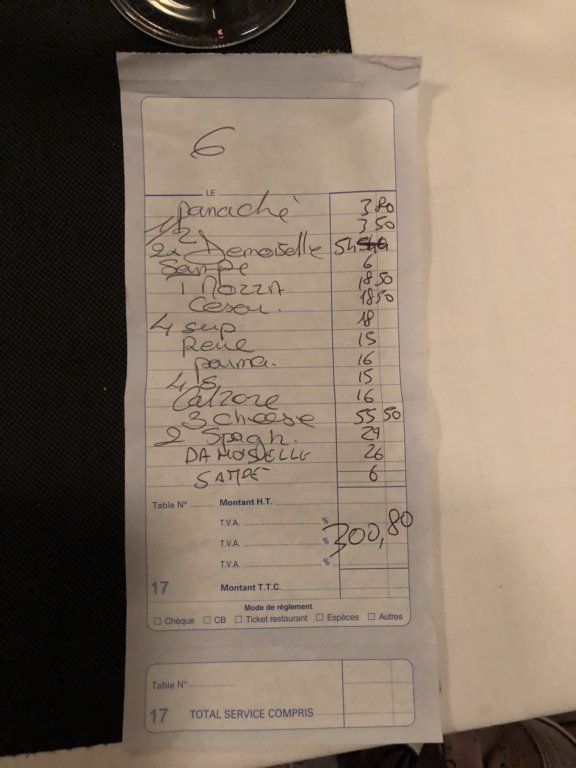 6
LE
panaché 3 80
1/2 3 50
2x Demoiselle 54
Sampe 6
1 Mozza 18 50
Cesar. 18 50
4 sup 18
Reine 15
parma. 16
4 S 15
Calzone 16
3 cheese 55 50
2 Spagh. 29
DAMOSELLE 26
SAMPE 6
Table N° Montant H.T.
T.V.A. %
T.V.A. % 300,80
T.V.A. %
17 Montant T.T.C.
Mode de réglement
☐ Chèque ☐ CB ☐ Ticket restaurant ☐ Espèces ☐ Autres
Table N°
17 TOTAL SERVICE COMPRIS